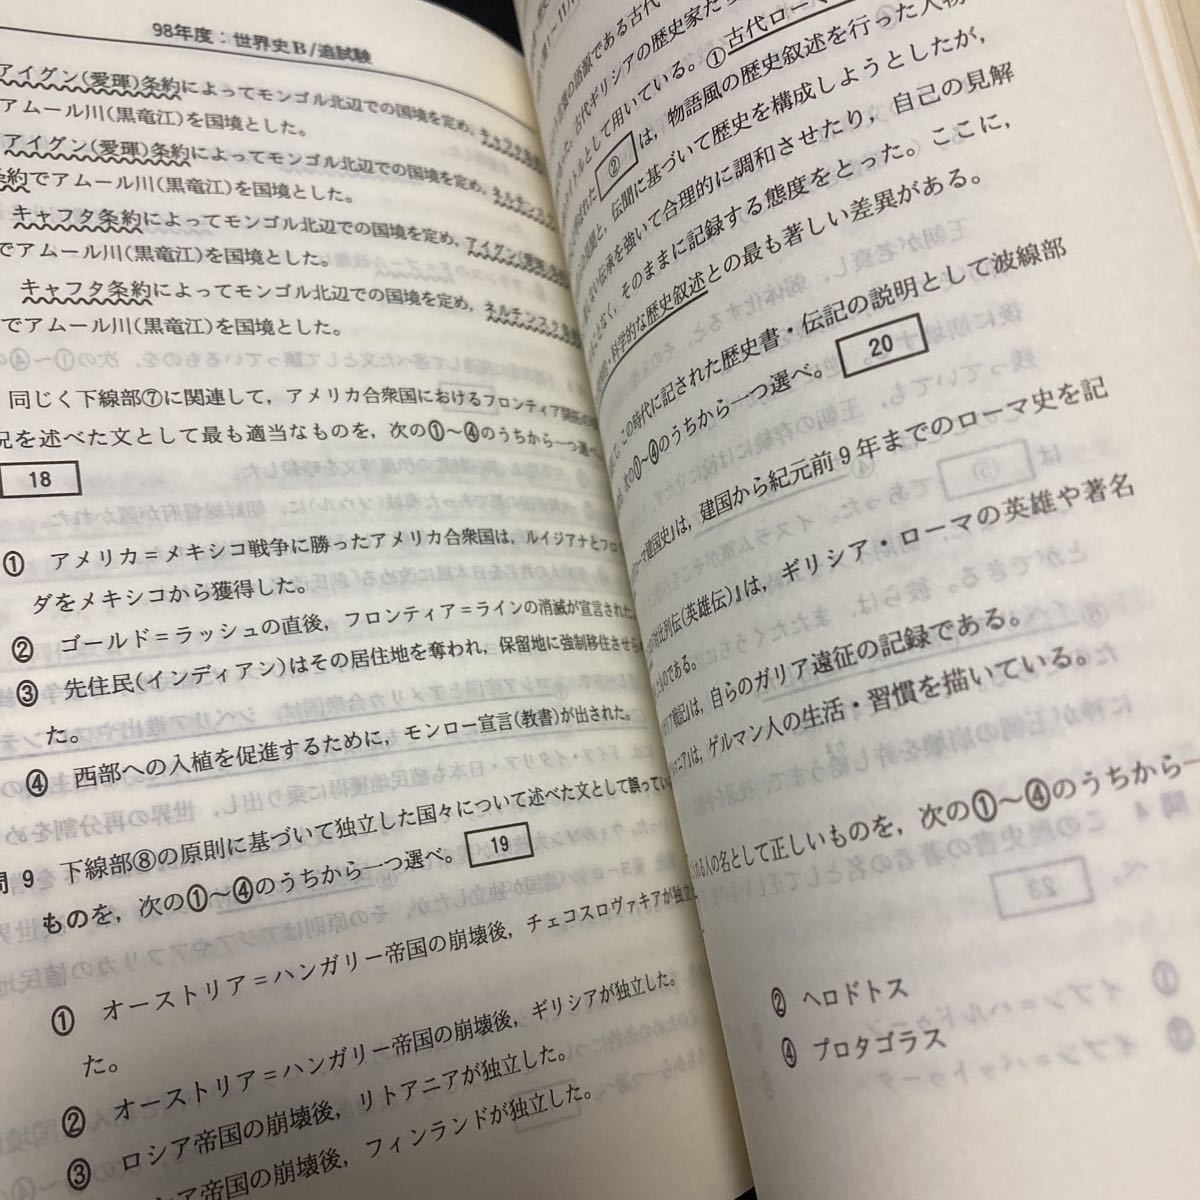 98年度：世界史B/追試験
アイグン(愛琿)条約によってモンゴル北辺での国境を定め，
アムール川(黒竜江)を国境とした。
アイグン(愛琿)条約によってモンゴル北辺での国境を定め，ネルチンス
条約でアムール川(黒竜江)を国境とした。
キャフタ条約によってモンゴル北辺での国境を定め，アイグン(愛琿)
でアムール川(黒竜江)を国境とした。
キャフタ条約によってモンゴル北辺での国境を定め，ネルチンスク条
でアムール川(黒竜江)を国境とした。
同じく下線部⑦に関連して，アメリカ合衆国におけるフロンティア開拓の
況を述べた文として最も適当なものを，次の①～④のうちから一つ選べ。
18
① アメリカ＝メキシコ戦争に勝ったアメリカ合衆国は，ルイジアナとフロ
ダをメキシコから獲得した。
② ゴールド＝ラッシュの直後，フロンティア＝ラインの消滅が宣言された。
③ 先住民(インディアン)はその居住地を奪われ，保留地に強制移住させられ
た。
④ 西部への入植を促進するために，モンロー宣言(教書)が出された。
問9 下線部⑧の原則に基づいて独立した国々について述べた文として誤ってい
ものを，次の①～④のうちから一つ選べ。 19
① オーストリア＝ハンガリー帝国の崩壊後，チェコスロヴァキアが独立し
た。
② オーストリア＝ハンガリー帝国の崩壊後，ギリシアが独立した。
③ ロシア帝国の崩壊後，リトアニアが独立した。
ア帝国の崩壊後，フィンランドが独立した。
の語源である古代
古代ギリシアの歴史家た
タイトルとして用いている。①古代ローマ
② は，物語風の歴史叙述を行った人物
の見聞と，伝聞に基づいて歴史を構成しようとしたが，
ない伝承を強いて合理的に調和させたり，自己の見解
ことなく，そのままに記録する態度をとった。ここに，
・科学的な歴史叙述との最も著しい差異がある。
て，この時代に記された歴史書・伝記の説明として波線部
次の①～④のうちから一つ選べ。 20
ローマ建国史』は，建国から紀元前9年までのローマ史を記
対比列伝(英雄伝)』は，ギリシア・ローマの英雄や著名
ものである。
リア戦記』は，自らのガリア遠征の記録である。
マニア』は，ゲルマン人の生活・習慣を描いている。
れる人の名として正しいものを，次の①～④のうちから一
② ヘロドトス
④ プロタゴラス